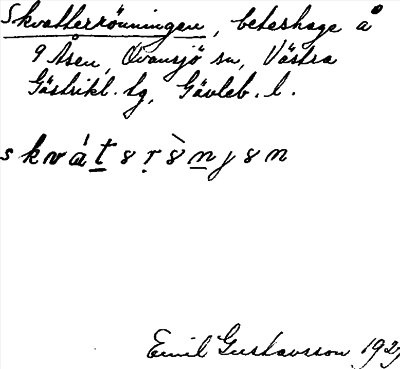 Skvatterrönningen, beteshage å
9 Åsen, Ovansjö sn, Västra
Gästrikl. tg, Gävleb. l.
skvát8r8̀nj8n
Emil Gustavsson 192